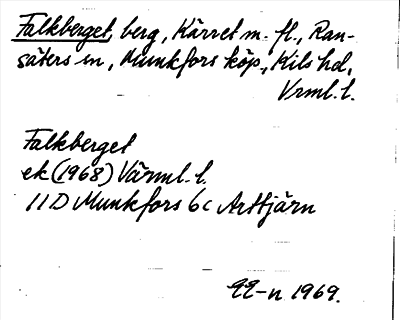 Falkberget, berg, Kärret m. fl., Ran-
säters sn, Munkfors köp., Kils hd,
Vrml. l.
Falkberget
ek (1968) Värml. l.
11D Munkfors 6c Arttjärn
1969.